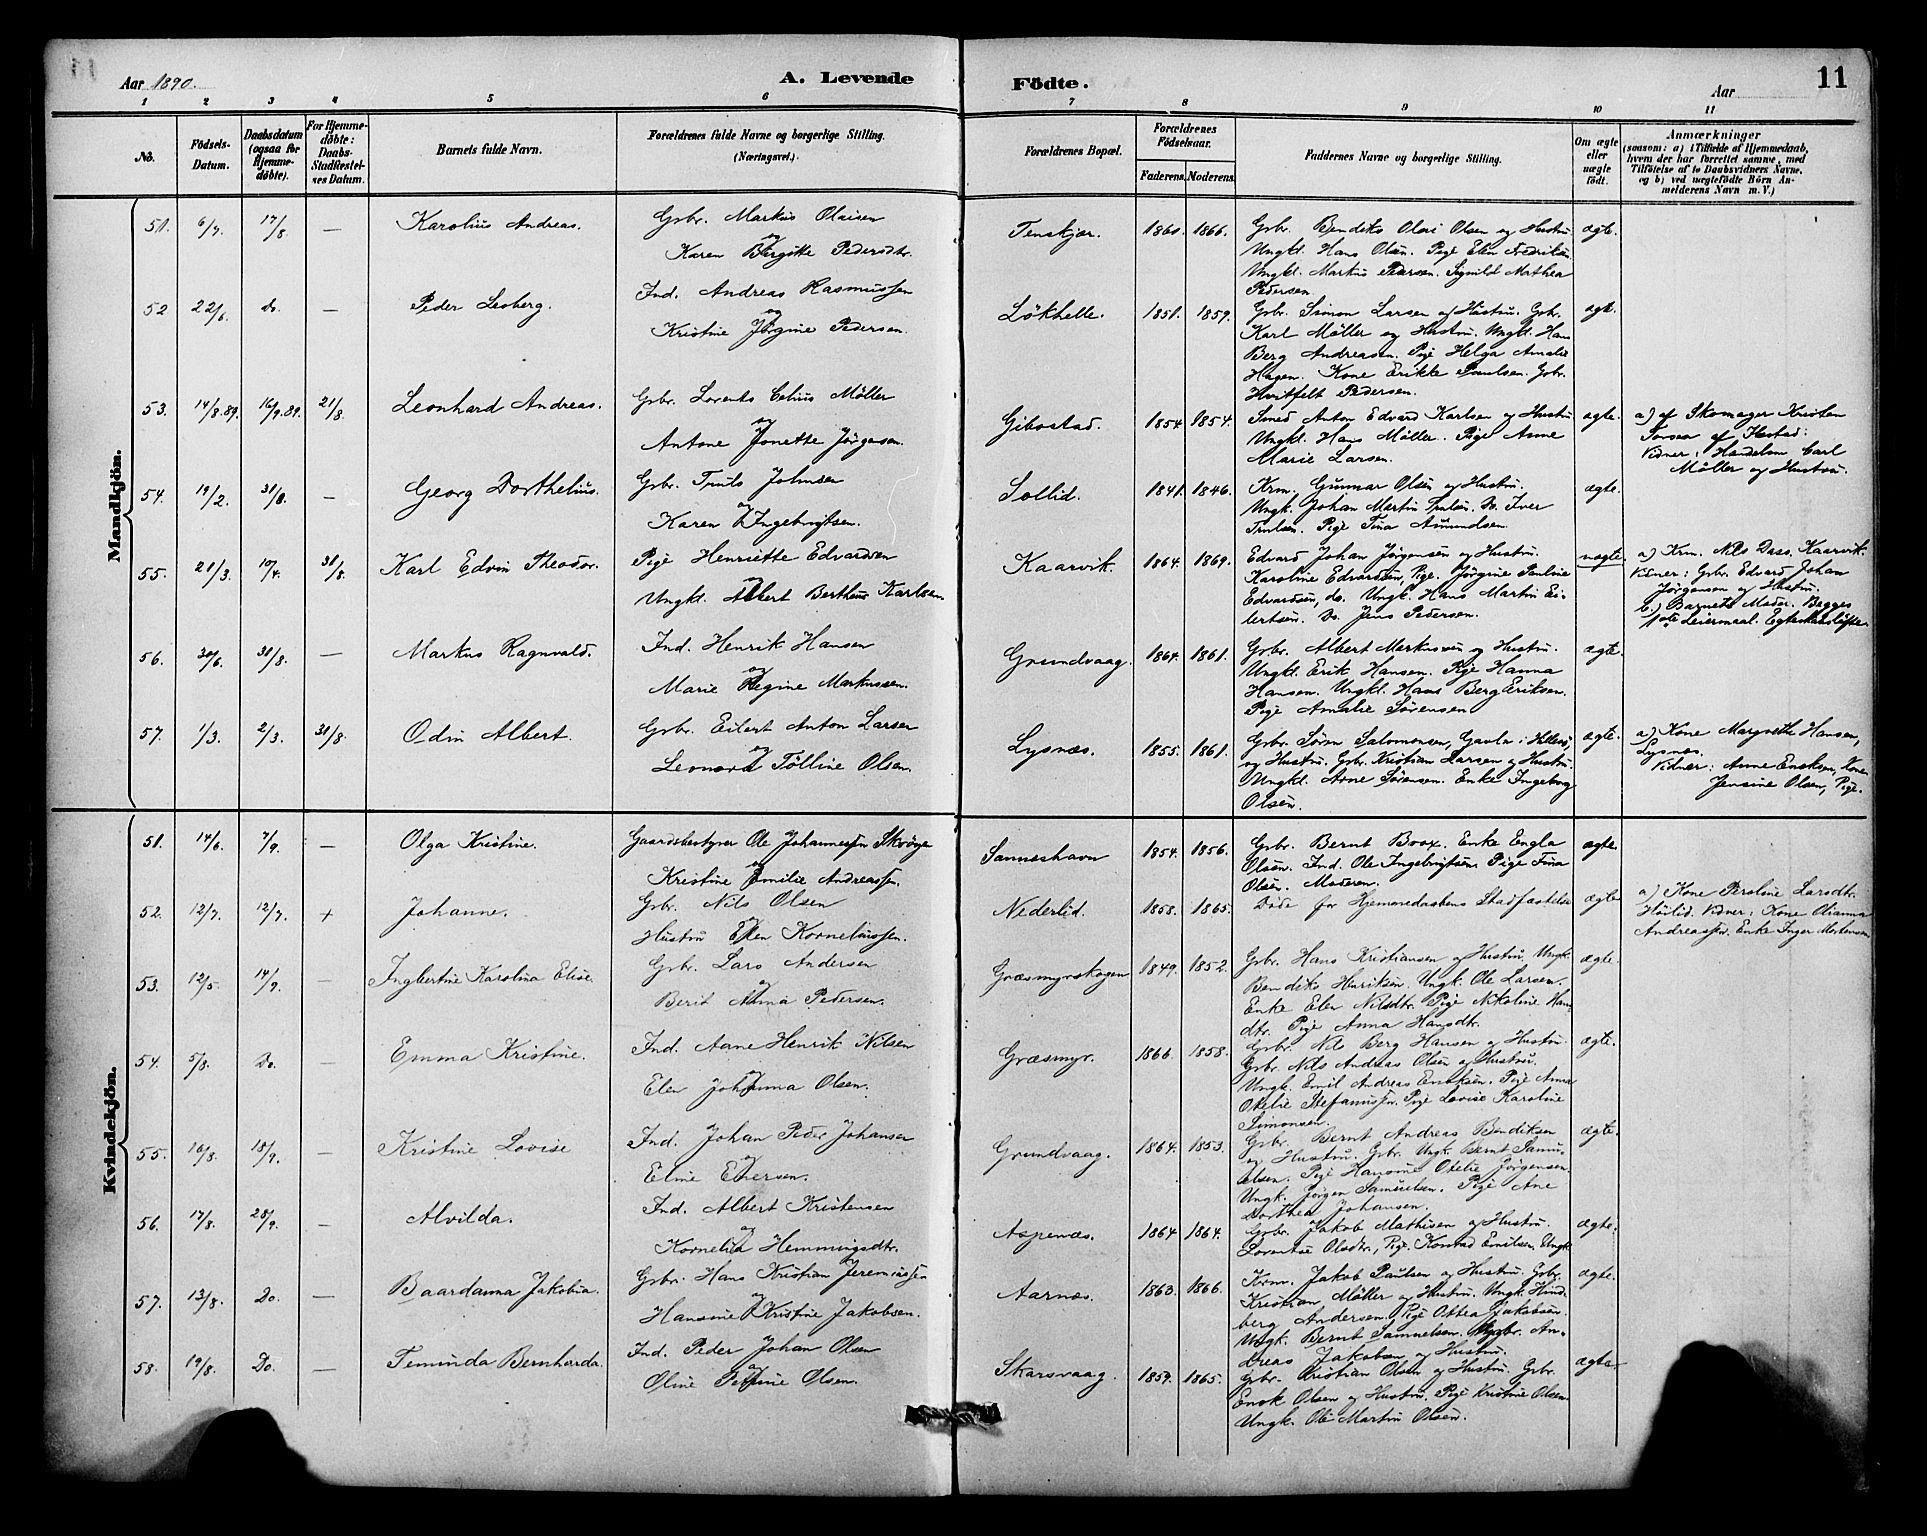 11
Aar 1890.
A. Levende Födte.
Aar
1 2 3 4 5 6 7 8 9 10 11
No.
Födsels-Datum.
Daabsdatum (ogsaa for Hjemme-döbte).
For Hjemme-döbte: Daabs-Stadfæstel-ses Datum.
Barnets fulde Navn.
Forældrenes fulde Navne og borgerlige Stilling. (Næringsvei.)
Forældrenes Bopæl.
Forældrenes Födselsaar.
Faderens. Moderens.
Faddernes Navne og borgerlige Stilling.
Om ægte eller uægte födt.
Anmærkninger
(saasom: a) i Tilfælde af Hjemmedaab, hvem der har forrettet samme, med Tilföielse af to Daabsvidners Navne, og b) ved uægtefödte Börn An-melderens Navn m. V.)
Mandkjön.
51. 6/7. 17/8. — Karolius Andreas. Gbr. Markus Olaisen
og
Karen Birgitte Pedersdtr.
Tenskjær. 1860. 1866.
Gbr. Bendiks Olai Olsen og Hustru
Ungkl. Hans Olsen. Pige Elen Fredriksen
Ungkl. Markus Pedersen. Signild Mathea
Pedersen
ægte.
52 22/6. Do. — Peder Lesberg. Ind. Andreas Rasmussen
og
Kristine Jörgine Pedersen.
Lökhelle. 1851. 1859.
Gbr. Simon Larsen og Hustru. Gbr.
Karl Möller og Hustru. Ungkl. Hans
Berg Andreasen. Pige Helga Amalie
Hagen. Kone Erikke Paulsen. Gbr.
Hvitfelt Pedersen.
ægte.
53. 14/8.89. 16/9.89. 21/8. Leonhard Andreas. Gbr. Lorents Celius Möller
og
Antone Jonette Jörgensen.
Gibostad. 1854 1854.
Smed Anton Edvard Karlsen og Hustru
Ungkl. Hans Möller. Pige Anne
Marie Larsen.
ægte.
a) af Skomager Kristen
af Hustad:
Vidner: Handelsm Carl
Möller og Hustru.
54. 19/2. 31/8. — Georg Dorthelius. Gbr. Truls Johnsen
og
Karen Ingebrigtsen.
Sollid. 1841. 1846.
Krm. Gunnar Olsen og Hustru.
Ungk. Johan Martin Trulsen. Do. Iver
Trulsen. Pige Tina Amundsen.
ægte.
55. 21/3. 10/4. 31/8. Karl Edvin Theodor. Pige Henriette Edvardsen
og
Ungkl. Albert Bertheus Karlsen
Kaarvik. 1864. 1869.
Edvard Johan Jörgensen og Hustru.
Karoline Edvardsen, Pige. Jörgine Pauline
Edvardsen, do. Ungk. Hans Martin Ei-
lertsen. Do. Jens Pedersen.
uægte.
a) Krm. Nils Dass, Kaarvik.
Vidner: Gbr. Edvard Johan
Jörgensen og Hustru.
b.) Barnets Moder. Begges
1ste Leiermaal. Egteskabslöfte.
56. 30/6. 31/8. — Markus Ragnvald. Ind. Henrik Hansen
og
Marie Regine Markussen.
Grundvaag. 1864. 1861.
Gbr. Albert Markussen og Hustru.
Ungkl. Erik Hansen. Pige Hanna
Hansen. Ungkl. Hans Berg Eriksen.
Pige Amalie Sörensen
ægte.
57. 1/3. 2/3. 31/8. Odin Albert. Gbr. Eilert Anton Larsen
og
Leonora Tölline Olsen.
Lysnæs. 1855. 1861.
Gbr. Sörn Salomonsen, Gavlen i Hillesö,
og Hustru. Gbr. Kristian Larsen og Hustru
Ungkl. Arne Sörensen. Enke Ingeborg
Olsen.
ægte.
a) Kone Margrethe Hansen,
Lysnæs.
Vidner: Anne Eriksen, Kone
Jensine Olsen, Pige.
Kvindekjön.
51. 14/6. 7/9. — Olga Kristine. Gaardsbestyrer Ole Johannessen Skröge
og
Kristine Emilie Andreassen.
Sanneshavn 1854. 1856.
Gbr. Bernt Boox. Enke Engla
Olsen. Ind. Ole Ingebrigtsen. Pige Tina
Olsen. Moderen.
ægte
52. 12/7. 12/7. + Johanne. Gbr. Nils Olsen
og
Hustru Elen Korneliussen.
Nederlid. 1858. 1865.
Döde för Hjemmedaabens Stadfæstelse
ægte
a) Kone Peroline Larsdtr.
Höilid. Vidner: Kone Olianna
Andreassen. Enke Inger Mortensen
53. 12/5. 14/9. — Ingbertine Karolina Elise. Gbr. Lars Andersen
og
Berit Anna Pedersen.
Græsmyrskogen 1849. 1852.
Gbr. Hans Kristiansen og Hustru. Ungk.
Bendiks Henriksen. Ungk. Ole Larsen.
Enke Elen Nilsdtr. Pige Nikoline Hans-
dtr. Pige Anna Hansdtr.
ægte.
54. 5/8. Do. — Emma Kristine. Ind. Aane Henrik Nilsen
og
Elen Johanna Olsen.
Græsmyr. 1866. 1858.
Gbr. Nils Berg Hansen og Hustru.
Gbr. Nils Andreas Olsen og Hustru.
Ungk. Emil Andreas Eriksen. Pige Anna
Otelie Stefanussen. Pige Lovise Karoline
Simonsen.
ægte.
55. 16/8. 18/9. — Kristine Lovise Ind. Johan Peder Johansen
og
Eline Enersen.
Grundvaag. 1864. 1853.
Gbr. Bernt Andreas Bendiksen
og Hustru. Gbr. Ungk. Bernt Samu-
elsen. Pige Hansine Otelie Jörgensen.
Ungk. Jörgen Samuelsen. Pige Ane
Dorthea Johansen.
ægte.
56. 17/8. 28/9. — Alvilda. Ind. Albert Kristensen
og
Kornelia Hemmingsdtr.
Aspenæs. 1864 1864.
Gbr. Jakob Mathisen og Hustru.
Lorentse Olsdtr., Pige. Konrad Emilsen, Ungk
ægte.
57. 13/8. Do. — Baardanna Jakobia. Gbr. Hans Kristian Jeremiassen
og
Hansine Kristine Jakobsen.
Aarnæs. 1863. 1866.
Krm. Jakob Paulsen og Hustru. Gbr.
Kristian Möller og Hustru. Ungk. Hind-
berg Andersen. Pige Ottea Jakobsen.
Ungk. Bernt Samuelsen. Gbr. An-
dreas Jakobsen og Hustru.
ægte.
58. 19/8. Do. — Teminda Bernharda. Ind. Peder Johan Olsen
og
Oline Petrine Olsen.
Skarsvaag. 1859. 1865.
Gbr. Kristian Olsen og Hustru. Gbr.
Enok Olsen og Hustru. Pige Kristine Olsen
Ungk. Ole Martin Olsen.
ægte.